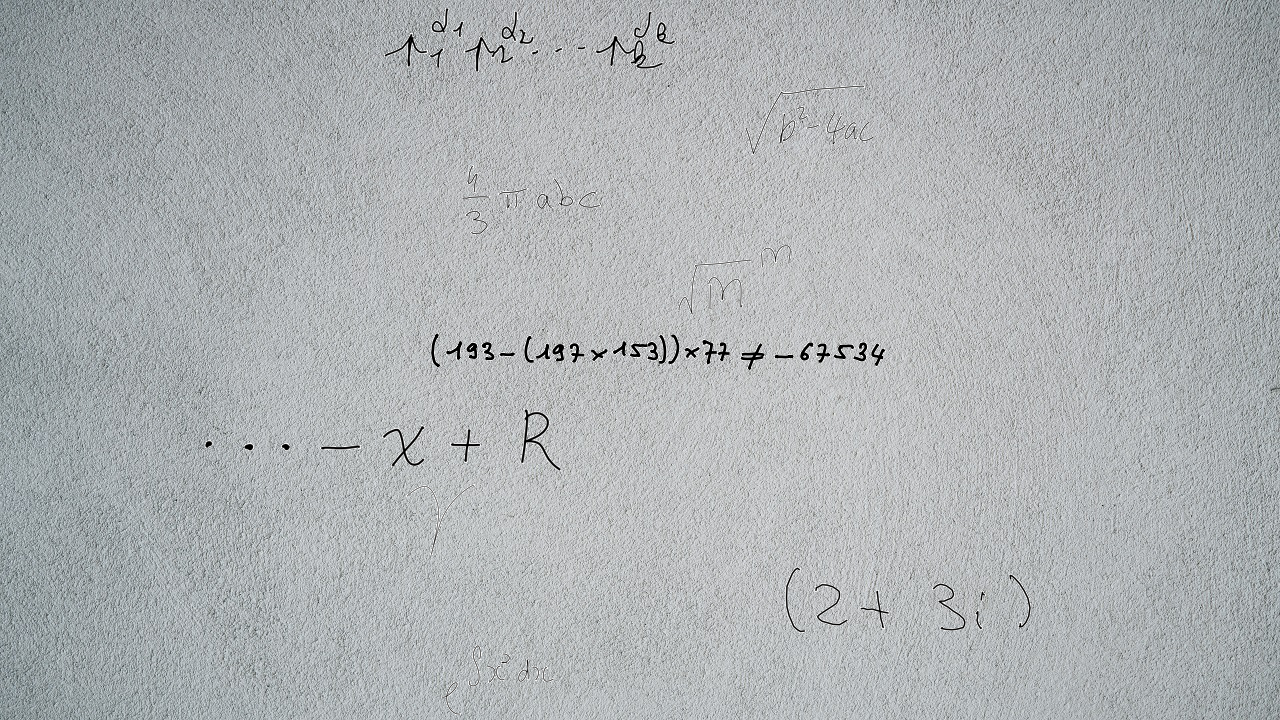 p₁^α₁ p₂^α₂ ... p_k^α_k
√(b²-4ac)
4/3 π abc
√m^m
(193-(197×153))×77 ≠ -67534
... - x + R
γ
(2+ 3i)
e^∫x²dx